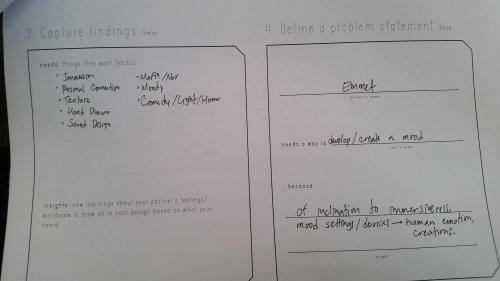 3. Capture findings 3min
needs: things they want (verbs)
• Immersion
• Personal Connection
• Texture
• Hand Drawn
• Sound Design
• Mafia/Noir
• Moody
• Comedy/Light/Humor
insights: new learnings about your partner's feelings/
worldview to draw on in your design based on what your
heard
4. Define a problem statement 3min
Emmet
partner's name
needs a way to develop/create a mood
user's need
because...
of inclination to immersiveness,
mood settings/devices → human emotion,
creations.
insight